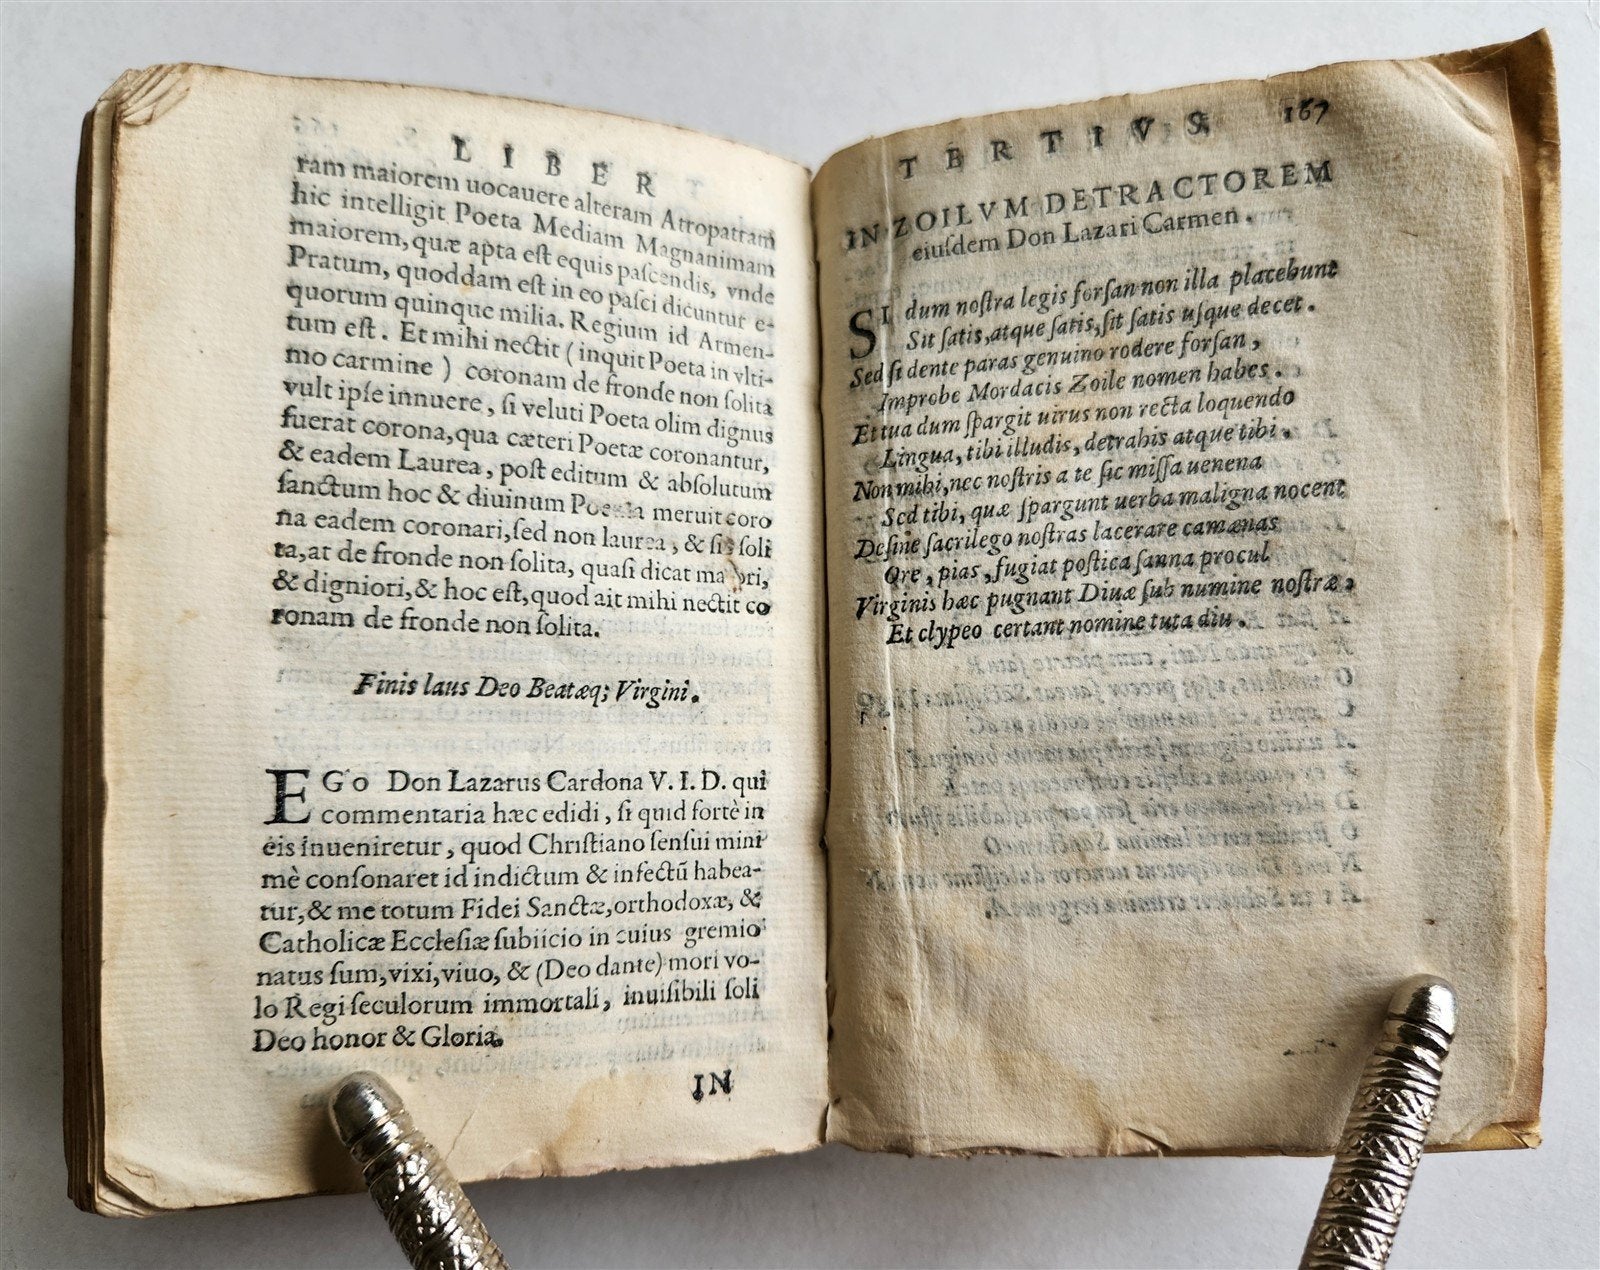 LIBER
ram maiorem uocauere alteram Atropatram
hic intelligit Poeta Mediam Magnanimam
maiorem, quæ apta eſt equis paſcendis, vnde
Pratum, quoddam eſt in eo paſci dicuntur e-
quorum quinque milia. Regium id Armen-
tum eſt. Et mihi nectit (inquit Poeta in vlti-
mo carmine) coronam de fronde non ſolita
vult ipſe innuere, ſi veluti Poeta olim dignus
fuerat corona, qua cæteri Poetæ coronantur,
& eadem Laurea, poſt editum & abſolutum
ſanctum hoc & diuinum meruit coro
na eadem coronari, ſed non laurea, & ſoli
ta, at de fronde non ſolita, quaſi dicat
& digniori, & hoc eſt, quod ait mihi nectit co
ronam de fronde non ſolita.
Finis laus Deo Beatæq; Virgini.
EGo Don Lazarus Cardona V. I. D. qui
commentaria hæc edidi, ſi quid fortè in
eis inueniretur, quod Chriſtiano ſenſui mini
mè conſonaret id indictum & infectū habea-
tur, & me totum Fidei Sanctæ, orthodoxæ, &
Catholicæ Eccleſiæ ſubiicio in cuius gremio
natus ſum, vixi, viuo, & (Deo dante) mori vo-
lo Regi ſeculorum immortali, inuiſibili ſoli
Deo honor & Gloria.
IN
TERTIVS 167
IN ZOILVM DETRACTOREM
eiuſdem Don Lazari Carmen.
SI dum noſtra legis forſan non illa placebunt
Sit ſatis, atque ſatis, ſit ſatis uſque decet.
Sed ſi dente paras genuino rodere forſan,
Improbe Mordacis Zoile nomen habes.
Et tua dum ſpargit uirus non recta loquendo
Lingua, tibi illudis, detrahis atque tibi.
Non mihi, nec noſtris a te ſic miſſa uenena
Sed tibi, quæ ſpargunt uerba maligna nocent
Deſine ſacrilego noſtras lacerare camænas
Ore, pias, fugiat poſtica ſanna procul
Virginis hæc pugnant Diuæ ſub numine noſtræ,
Et clypeo certant nomine tuta diu.